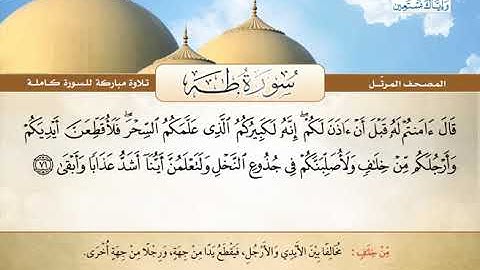 وَإِيَّاكَ نَسْتَعِينُ
المصحف المرتّل
سُورَةُ طه
تلاوة مباركة للسورة كاملة
قَالَ ءَامَنتُمْ لَهُۥ قَبْلَ أَنْ ءَاذَنَ لَكُمْ ۖ إِنَّهُۥ لَكَبِيرُكُمُ ٱلَّذِى عَلَّمَكُمُ ٱلسِّحْرَ ۖ فَلَأُقَطِّعَنَّ أَيْدِيَكُمْ
وَأَرْجُلَكُم مِّنْ خِلَٰفٍ وَلَأُصَلِّبَنَّكُمْ فِى جُذُوعِ ٱلنَّخْلِ وَلَتَعْلَمُنَّ أَيُّنَآ أَشَدُّ عَذَابًا وَأَبْقَىٰ ٧١
مِّنْ خِلَٰفٍ : مُخَالِفًا بَيْنَ الأَيْدِي وَالأَرْجُلِ، فَيَقْطَعُ يَدًا مِنْ جِهَةٍ، وَرِجْلًا مِنْ جِهَةٍ أُخْرَى.